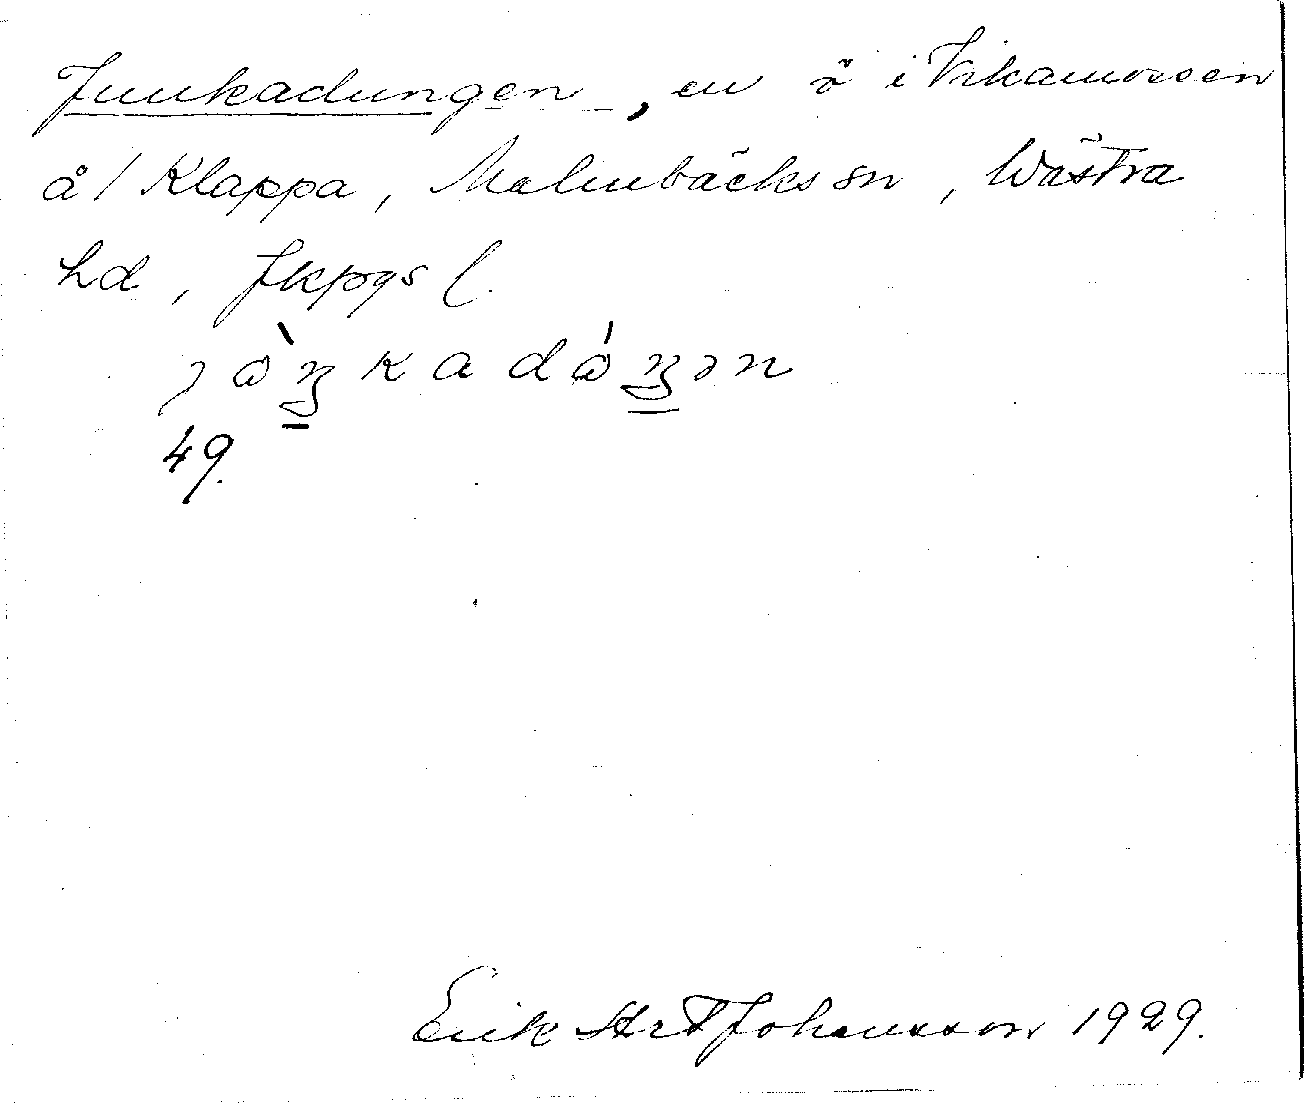 Junkadungen, en ö i Vikamossen
å/ Klappa, Malmbäcks sn, Wästra
hd, Jkpgs l.
jɷ̀ŋkadɷ́ŋən
49.
Erik Art Johansson 1929.